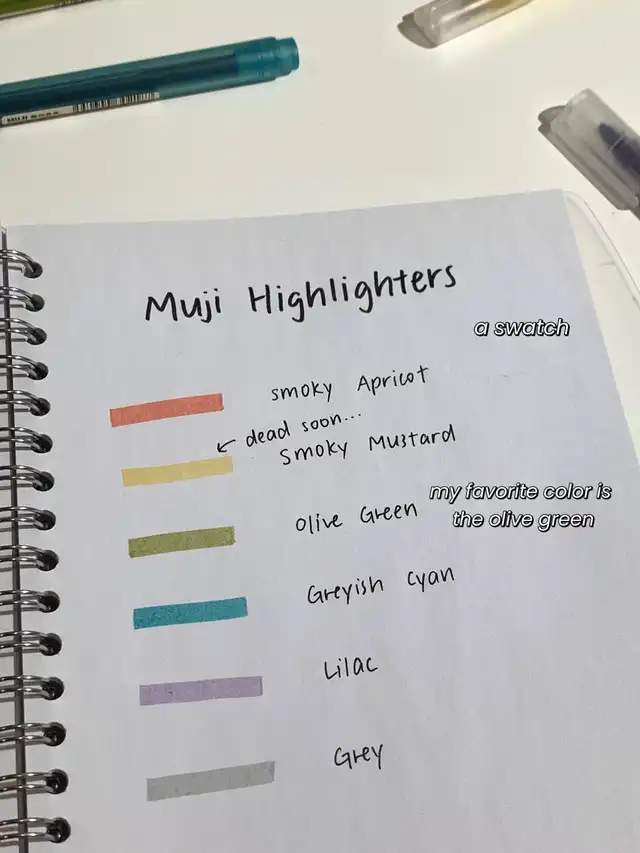 MUJI
Muji Highlighters
a swatch
smoky Apricot
dead soon...
Smoky Mustard
Olive Green
my favorite color is
the olive green
Greyish Cyan
Lilac
Grey